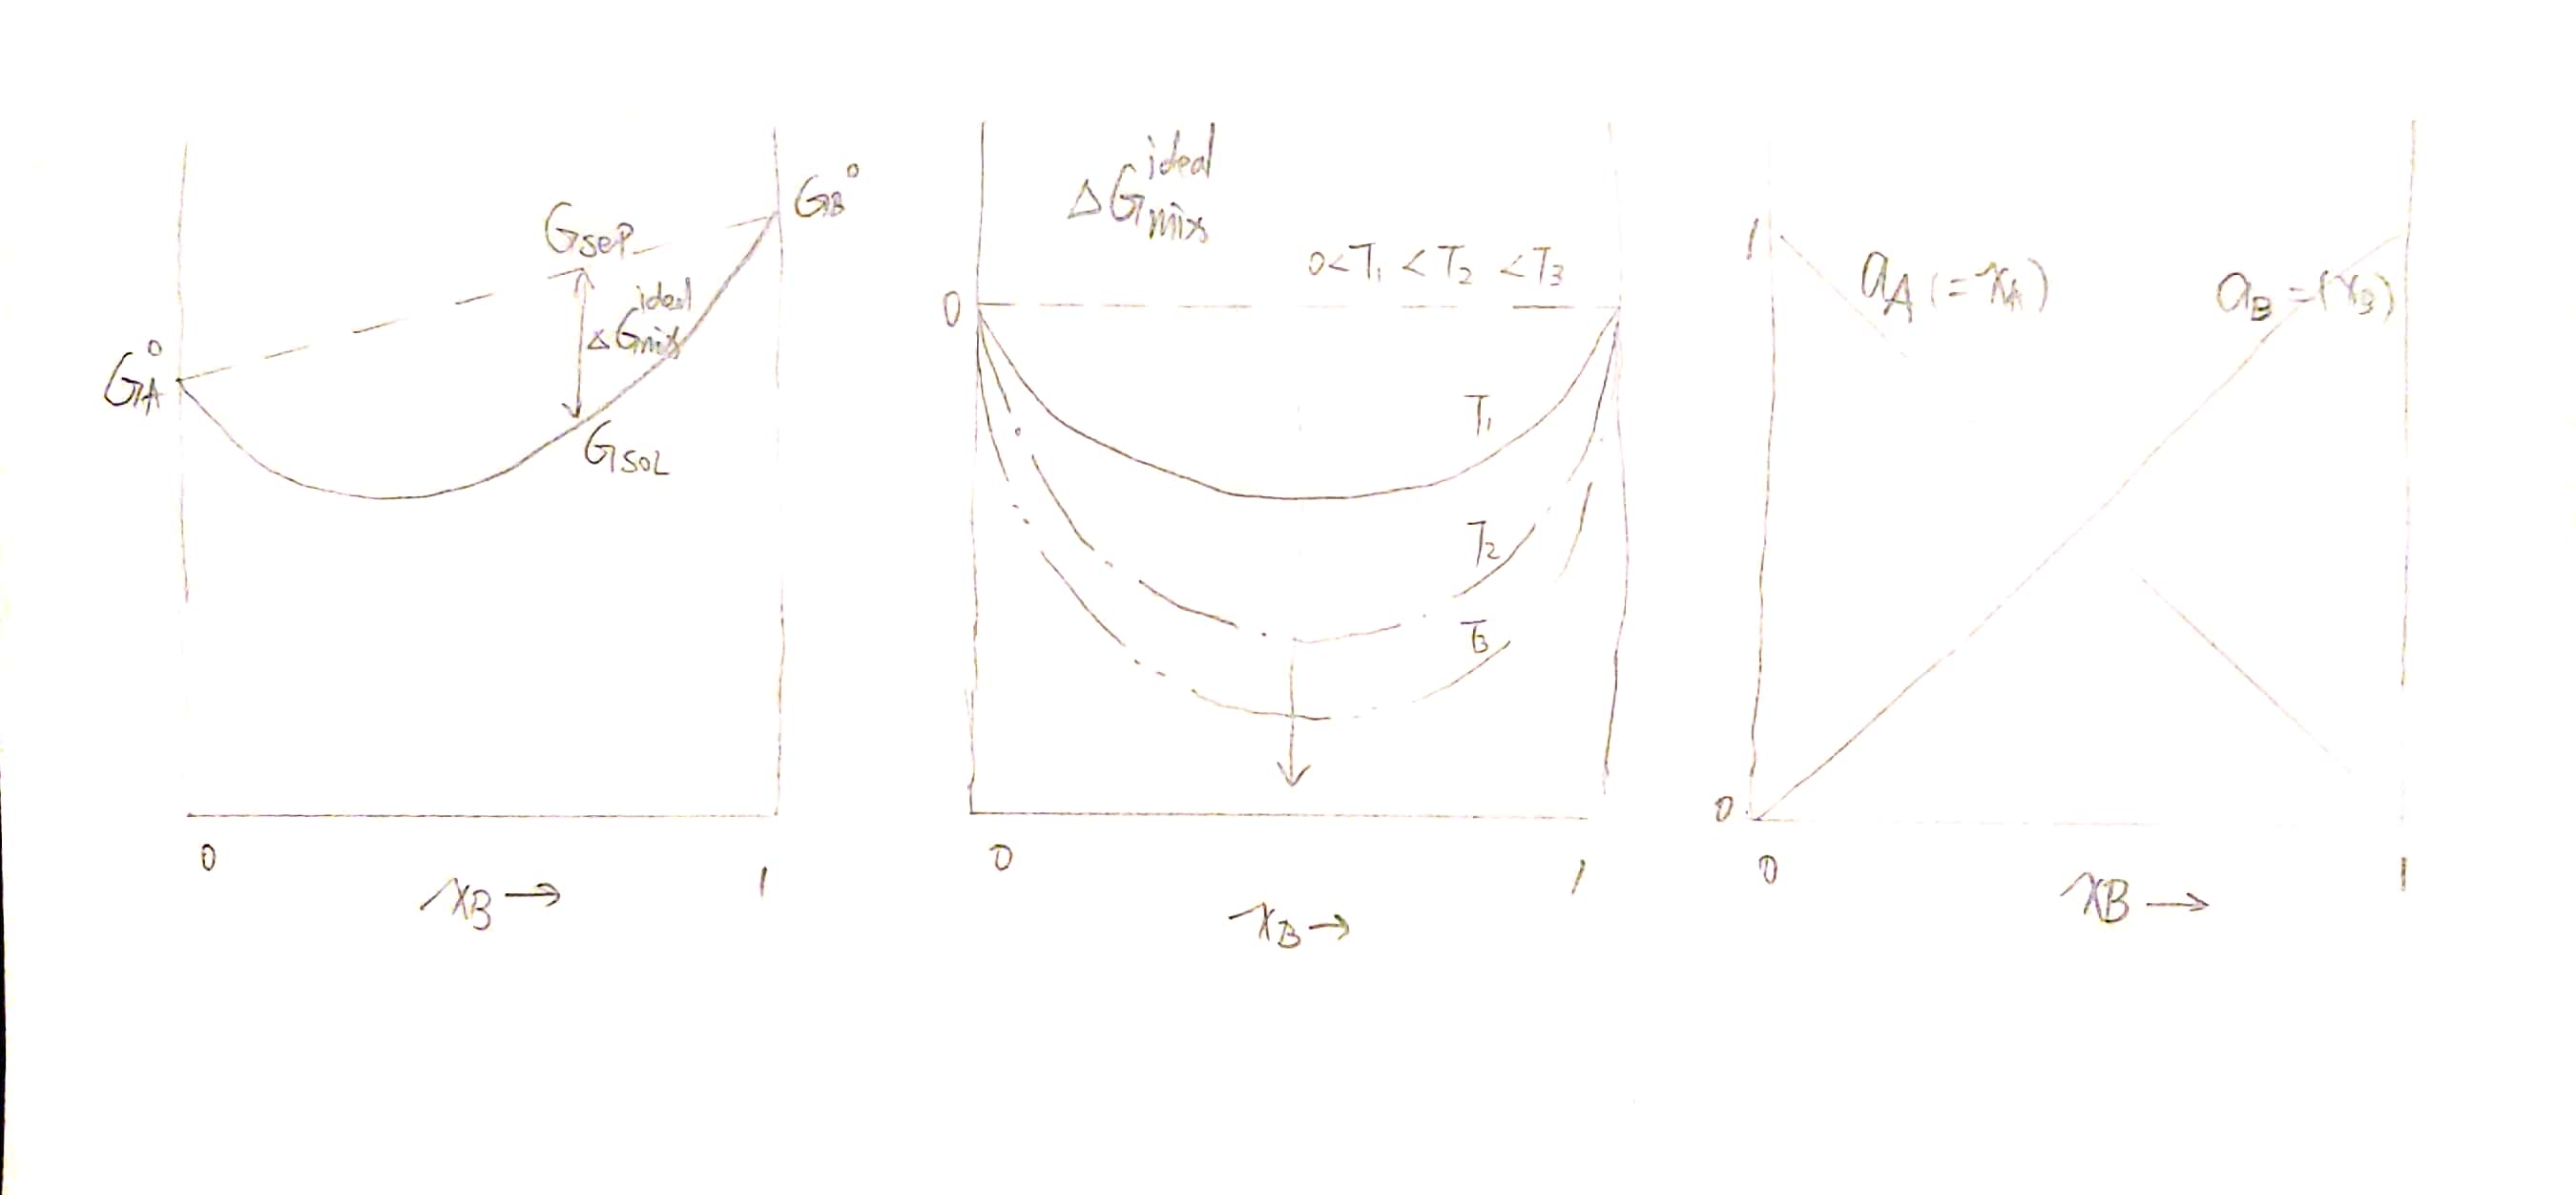 G_A°
G_SeP
G_B°
ΔG_mix^ideal
G_SOL
0
1
x_B →
ΔG_mix^ideal
0<T₁ <T₂ <T₃
0
T₁
T₂
T₃
0
1
x_B →
1
a_A (=x_A)
a_B =(x_B)
0
0
1
x_B →